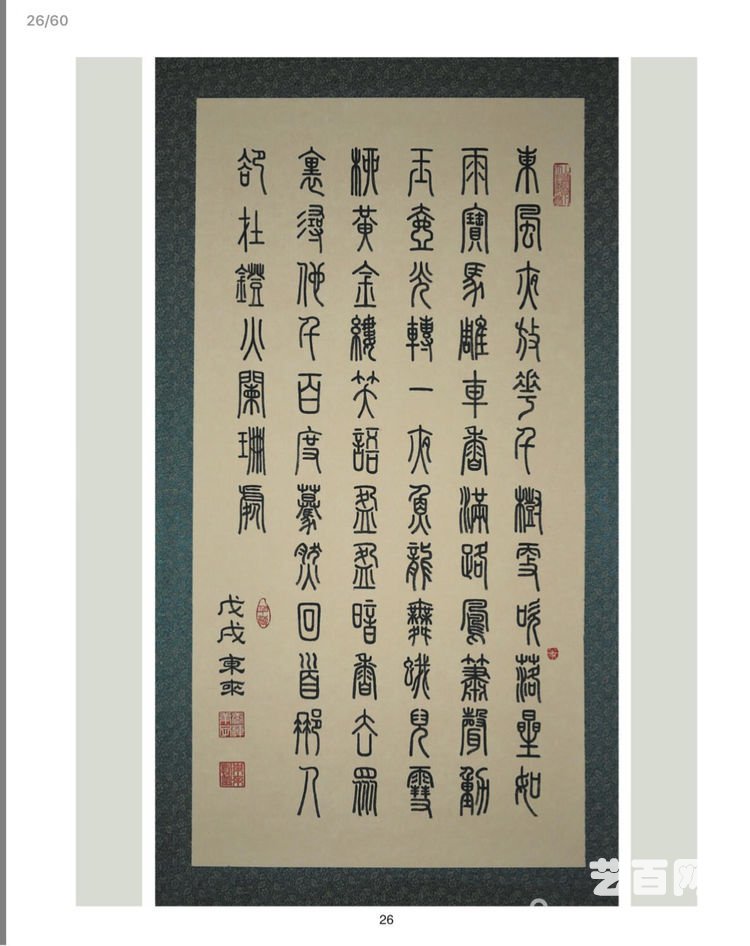 26/60
東風夜放華千樹更吹落星如
雨寶馬雕車香滿路鳳簫聲動
玉壺光轉一夜魚龍舞蛾兒雪
柳黃金縷笑語盈盈暗香去眾
裏尋他千百度驀然回首那人
卻在鐙火闌珊處
戊戌東來
艺百网
26